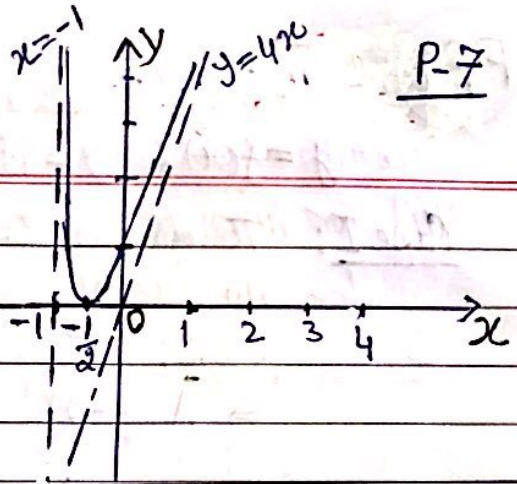 x=-1
y
y=4x
P-7
-1
-1/2
0
1
2
3
4
x